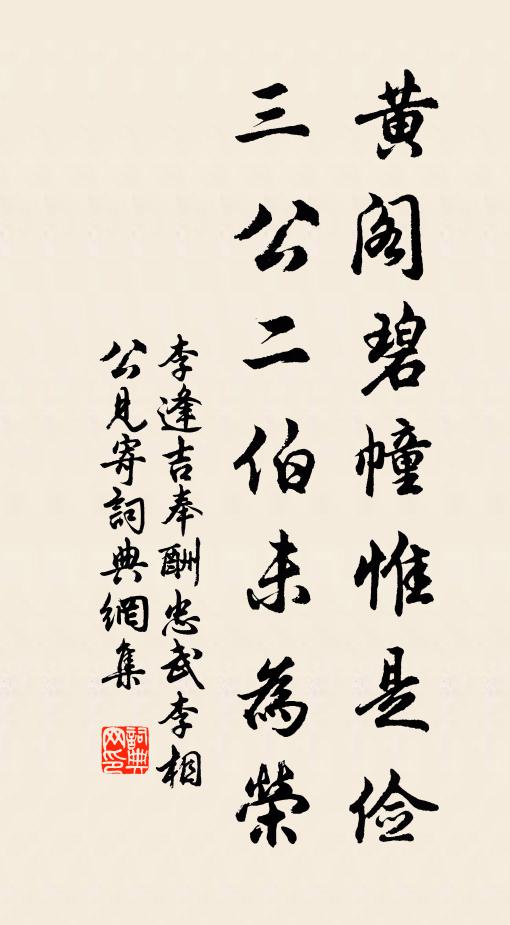 黄阁碧幢惟是俭
三公二伯未為榮
李逢吉奉酬忠武李相
公見寄詞典網集
詞典网印